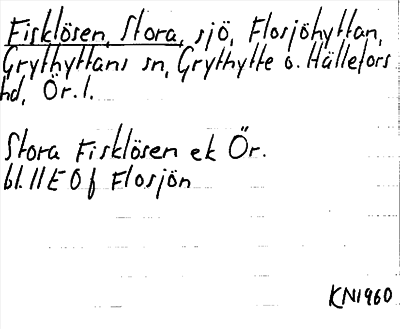 Fisklösen, Stora, sjö, Flosjöhyttan,
Grythyttans sn, Grythytte o. Hällefors
hd, Ör. l.
Stora Fisklösen ek Ör.
bl. 11E 0f Flosjön
KN1960